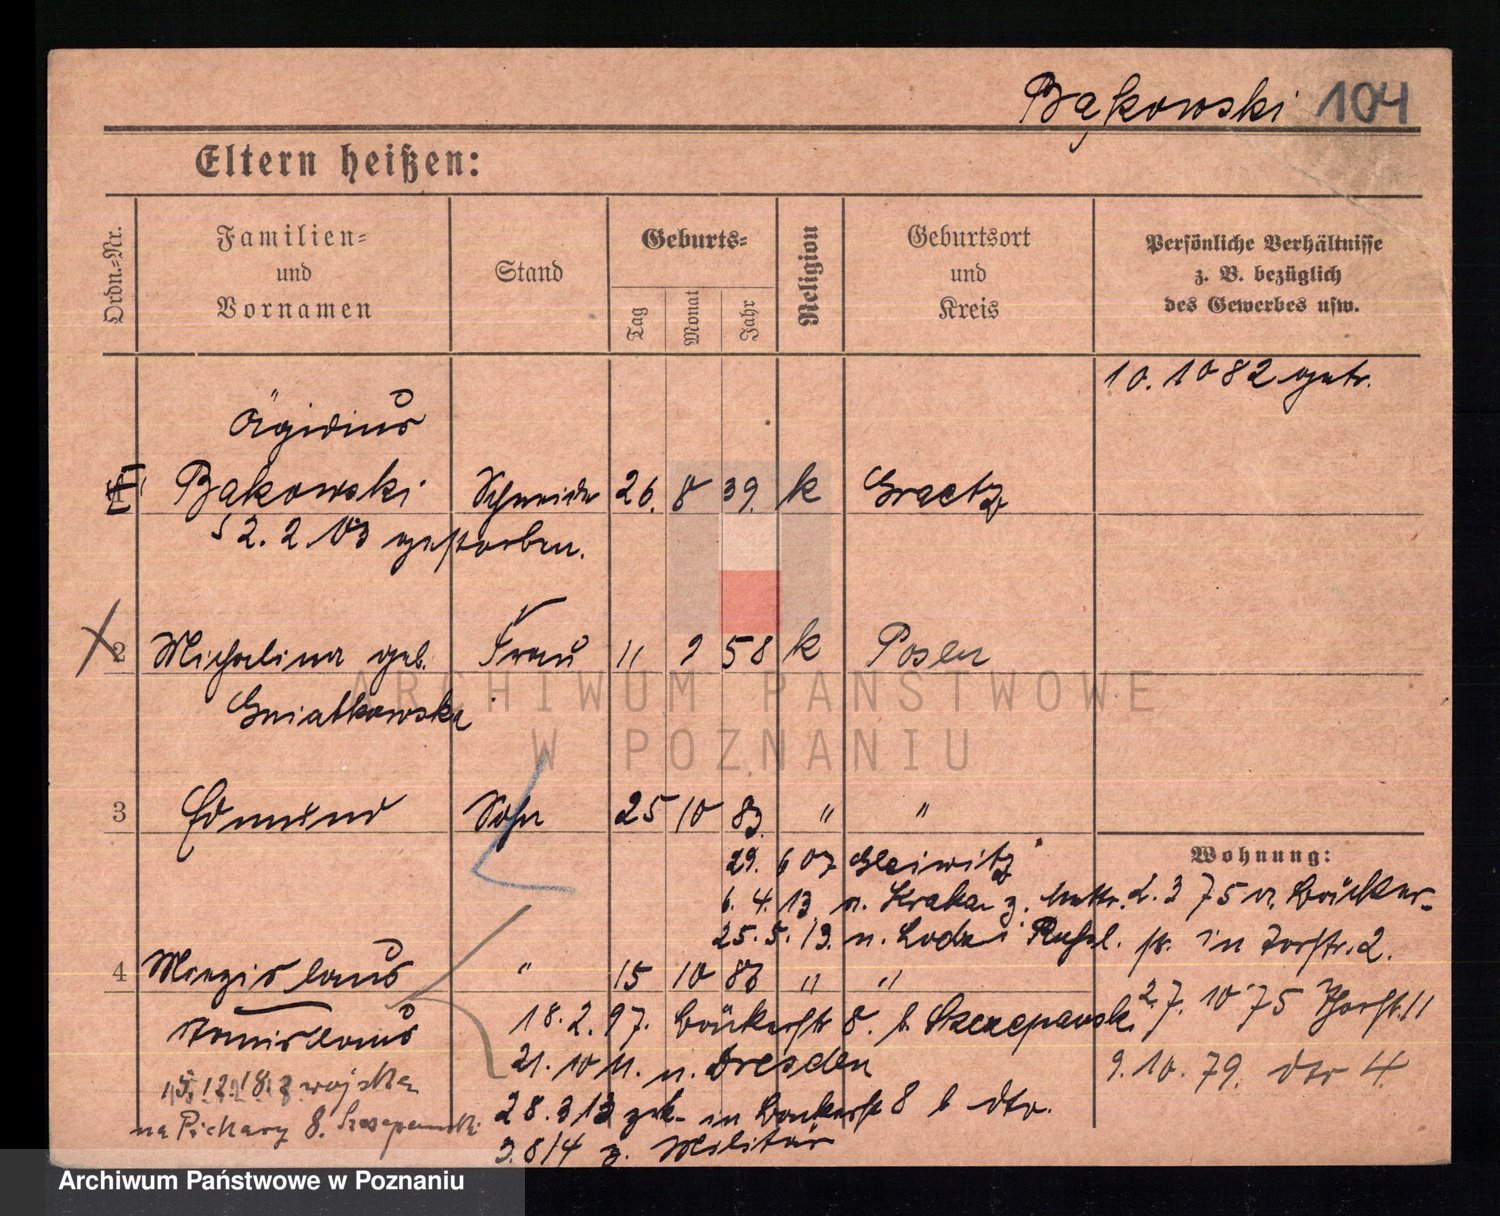 Bąkowski 104
Eltern heißen:
Ordn.-Nr.
Familien-
und
Vornamen
Stand
Geburts-
Tag
Monat
Jahr
Religion
Geburtsort
und
Kreis
Persönliche Verhältnisse
z. B. bezüglich
des Gewerbes usw.
10. 10 82 getr.
Ägidius
Bakowski Schneider 26. 8 39. k Graetz
2. 2. 03 gestorben.
2 Michalina geb. Frau 11 9 58 k Posen
Gniatkowska
3 Edmund Sohn 25 10 83 " "
Wohnung:
29. 6 07 Gleiwitz
6. 4. 13. n. Krakau z.
2. 3 75 v. Bäcker-
25. 5. 13. n. Lodz i Rußl.
str. in Torstr. 2.
4 Miezislaus " 15 10 86 " "
Stanislaus
18. 2. 97. Bäckerstr 8. b. Szczepansk.
2. 7. 10 75 Thorstr. 11
21. 10 11. n. Dresden
9. 10. 79. dto 4
15.12.18. z wojska
28. 3 13 zrk. in Bäckerstr 8 b dto.
na Piekary 8. Szczepanski
3. 8 14 z. Militär
ARCHIWUM PAŃSTWOWE
W POZNANIU
Archiwum Państwowe w Poznaniu